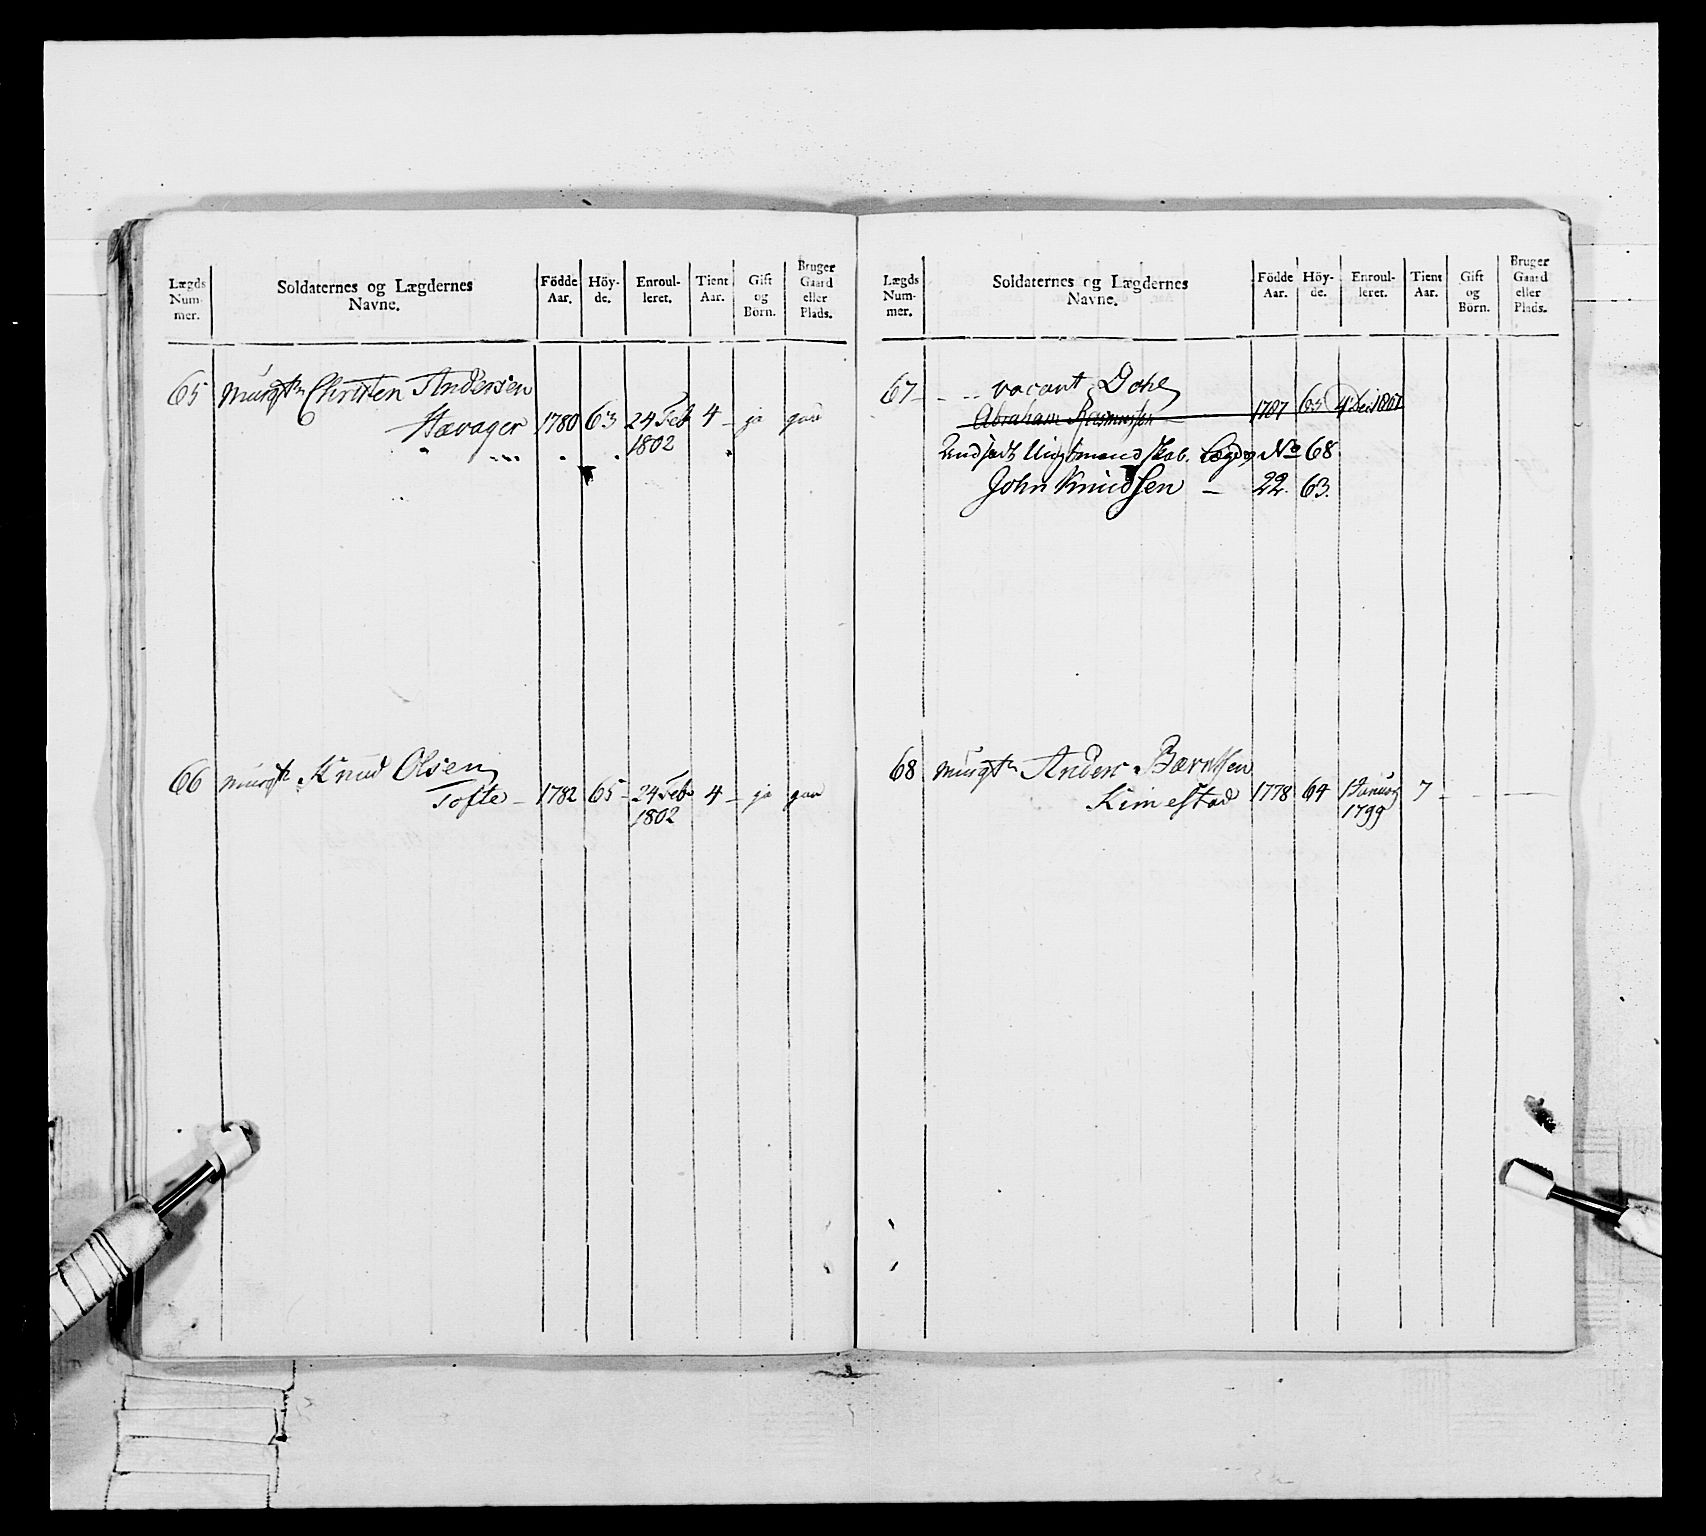 Lægds Num- mer. Soldaternes og Lægdernes Navne. Födde Aar. Höy- de. Enroul- leret. Tient Aar. Gift og Börn. Bruger Gaard eller Plads.
65 Christen Andersen
Hævager 1780 63 24 Feb 4 - ja gaa
1802
66 Knud Olsen
Tofte - 1782 65 - 24 Feb 4 - ja gaa
1802
Lægds Num- mer. Soldaternes og Lægdernes Navne. Födde Aar. Höy- de. Enroul- leret. Tient Aar. Gift og Börn. Bruger Gaard eller Plads.
67 - vacant
Abraham Rasmussen 1787 65 4 Dec 1801
No 68
John Knudsen - 22. 63.
68 Anders
Kimestad 1778 64 1 Januar 7 -
1799